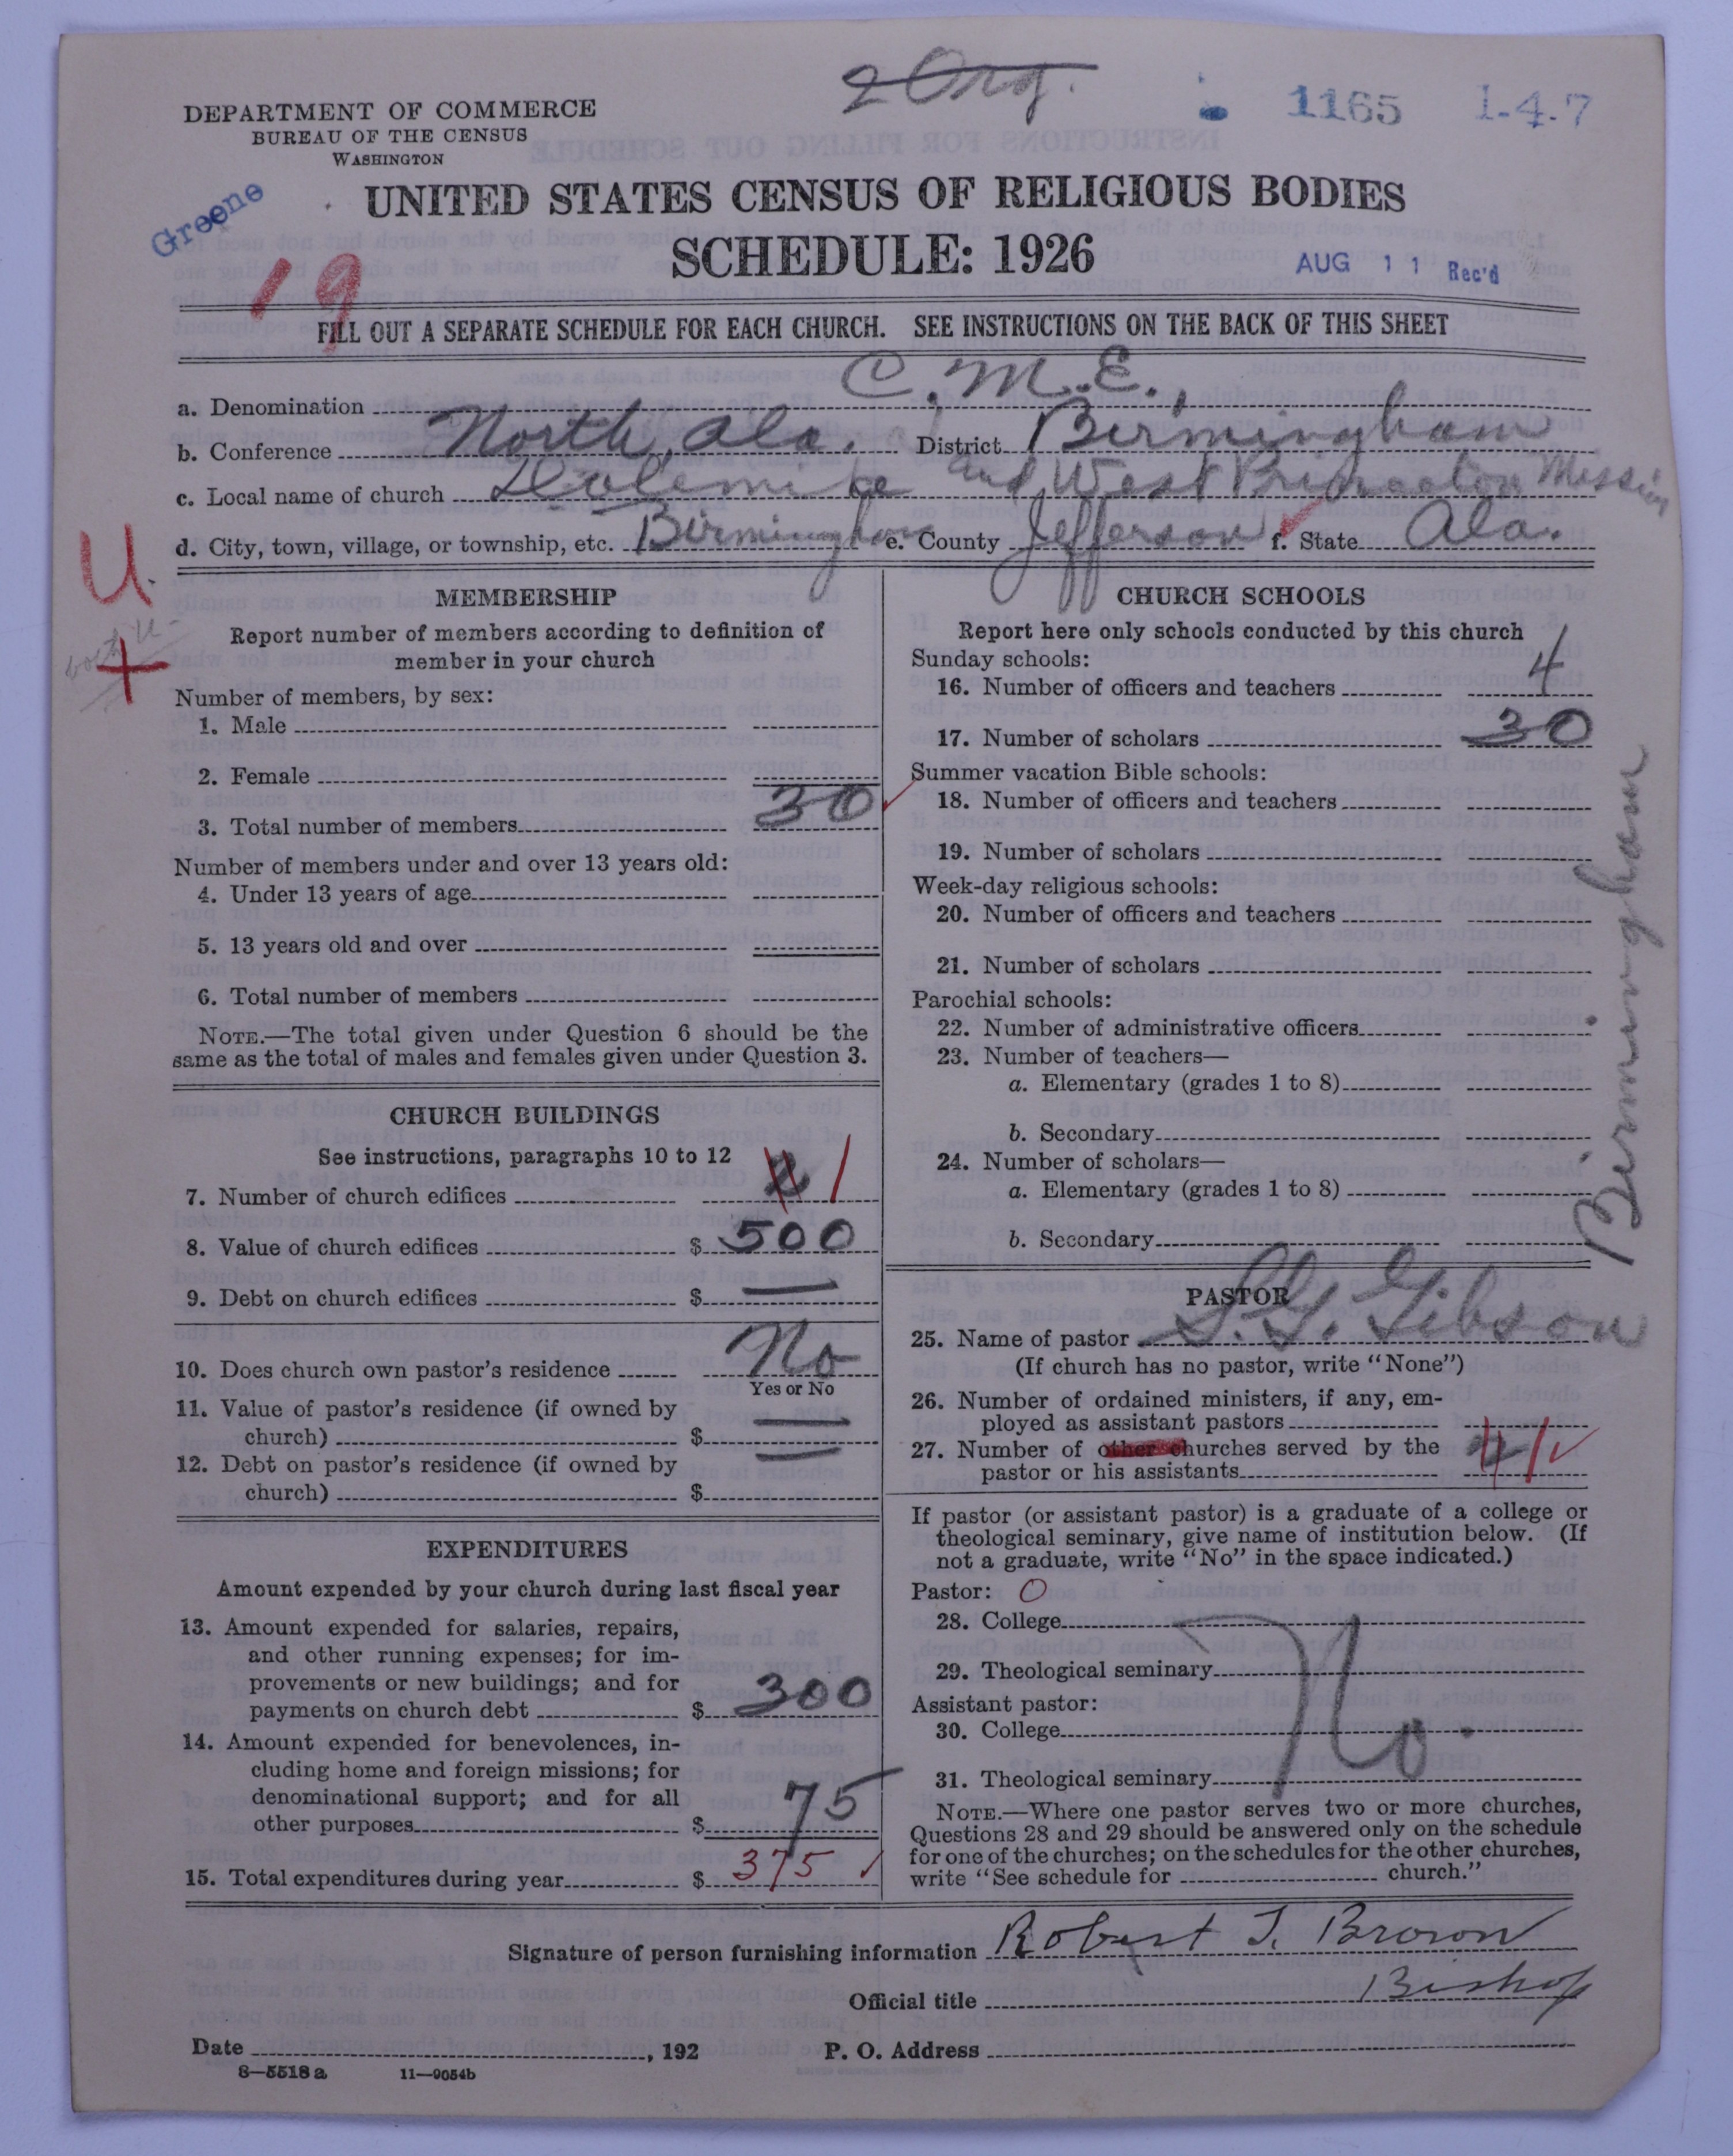 2 Org.
1165 1-4-7
DEPARTMENT OF COMMERCE
BUREAU OF THE CENSUS
WASHINGTON
Greene
UNITED STATES CENSUS OF RELIGIOUS BODIES
SCHEDULE: 1926
AUG 11 Rec'd
19
FILL OUT A SEPARATE SCHEDULE FOR EACH CHURCH. SEE INSTRUCTIONS ON THE BACK OF THIS SHEET
a. Denomination C.M.E.
b. Conference North Ala. District Birmingham
c. Local name of church and West Princeton Mission
d. City, town, village, or township, etc. Birmingham e. County Jefferson f. State Ala.
U.
both U-
MEMBERSHIP
Report number of members according to definition of
member in your church
Number of members, by sex:
1. Male
2. Female
3. Total number of members 30
Number of members under and over 13 years old:
4. Under 13 years of age
5. 13 years old and over
6. Total number of members
NOTE.—The total given under Question 6 should be the
same as the total of males and females given under Question 3.
CHURCH BUILDINGS
See instructions, paragraphs 10 to 12
7. Number of church edifices 2 1
8. Value of church edifices $ 500
9. Debt on church edifices $ —
10. Does church own pastor's residence No
Yes or No
11. Value of pastor's residence (if owned by
church) $ —
12. Debt on pastor's residence (if owned by
church) $ —
EXPENDITURES
Amount expended by your church during last fiscal year
13. Amount expended for salaries, repairs,
and other running expenses; for im-
provements or new buildings; and for
payments on church debt $ 300
14. Amount expended for benevolences, in-
cluding home and foreign missions; for
denominational support; and for all
other purposes $ 75
15. Total expenditures during year $ 375
CHURCH SCHOOLS
Report here only schools conducted by this church
Sunday schools:
16. Number of officers and teachers 4
17. Number of scholars 30
Summer vacation Bible schools:
18. Number of officers and teachers
19. Number of scholars
Week-day religious schools:
20. Number of officers and teachers
21. Number of scholars
Parochial schools:
22. Number of administrative officers
23. Number of teachers—
a. Elementary (grades 1 to 8)
b. Secondary
24. Number of scholars—
a. Elementary (grades 1 to 8)
b. Secondary
Birmingham
PASTOR
25. Name of pastor S. G. Gibson
(If church has no pastor, write "None")
26. Number of ordained ministers, if any, em-
ployed as assistant pastors
27. Number of other churches served by the
pastor or his assistants 2 1
If pastor (or assistant pastor) is a graduate of a college or
theological seminary, give name of institution below. (If
not a graduate, write "No" in the space indicated.)
Pastor: O
28. College
29. Theological seminary
Assistant pastor:
30. College
31. Theological seminary
No.
NOTE.—Where one pastor serves two or more churches,
Questions 28 and 29 should be answered only on the schedule
for one of the churches; on the schedules for the other churches,
write "See schedule for church."
Signature of person furnishing information Robert T. Brown
Official title Bishop
Date , 192 P. O. Address
8—5518a 11—9054b